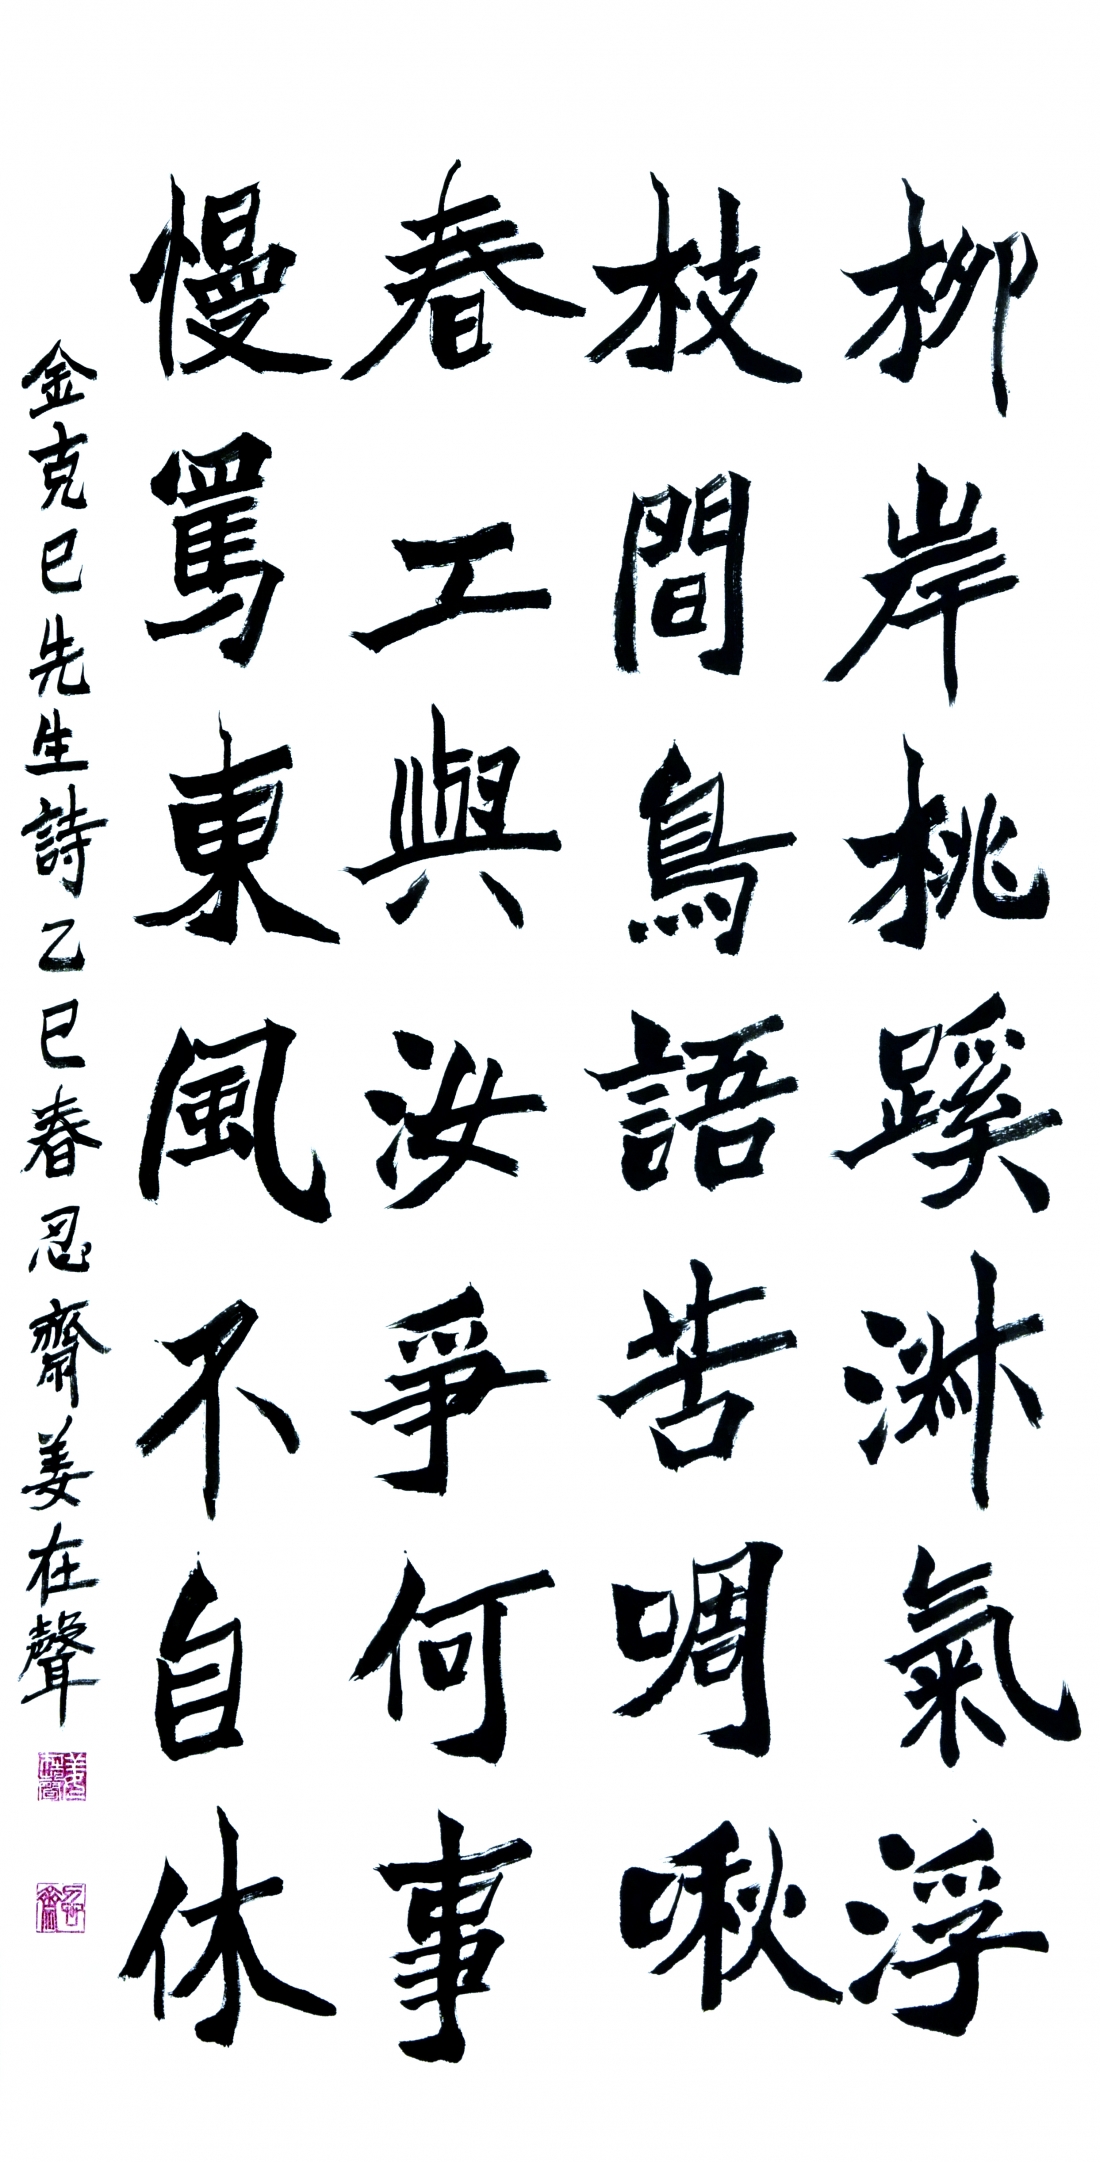 柳岸桃蹊淑氣浮
枝間鳥語苦啁啾
春工與汝爭何事
慢罵東風不自休
金克巳先生詩乙巳春忍齋姜在聲